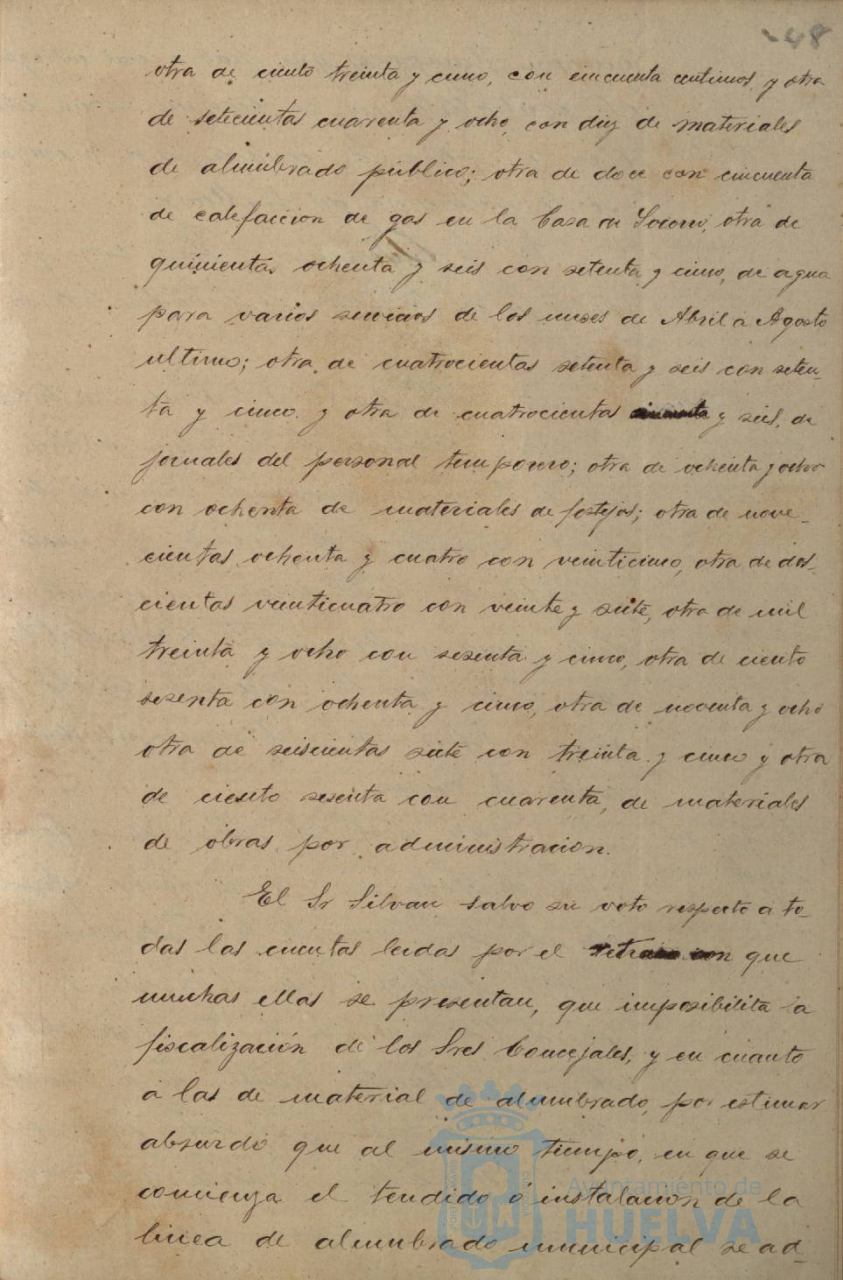 48
otra de ciento treinta y cinco, con cincuenta centimos, y otra
de setecientas cuarenta y ocho, con diez de materiales
de alumbrado público; otra de doce con cincuenta
de calefaccion de gas en la Casa de Socorro, otra de
quinientas ochenta y seis con setenta y cinco, de agua
para varios servicios de los meses de Abril a Agosto
ultimo; otra de cuatrocientas setenta y seis con seten-
ta y cinco y otra de cuatrocientas y seis, de
jornales del personal temporero; otra de ochenta y ocho
con ochenta de materiales de festejos; otra de nove-
cientas ochenta y cuatro con veinticinco, otra de dos-
cientas veinticuatro con veinte y siete, otra de mil
treinta y ocho con sesenta y cinco, otra de ciento
sesenta con ochenta y cinco, otra de noventa y ocho
otra de seiscientas siete con treinta y cinco y otra
de ciento sesenta con cuarenta, de materiales
de obras por administracion.
El Sr Silvan salvo su voto respecto a to-
das las cuentas leidas por el que
muchas ellas se presentan, que imposibilita la
fiscalización de los Sres Concejales, y en cuanto
a las de material de alumbrado, por estimar
absurdo que al mismo tiempo, en que se
comienza el tendido ó instalacion de la
linea de alumbrado municipal se ad-
Ayuntamiento de
HUELVA